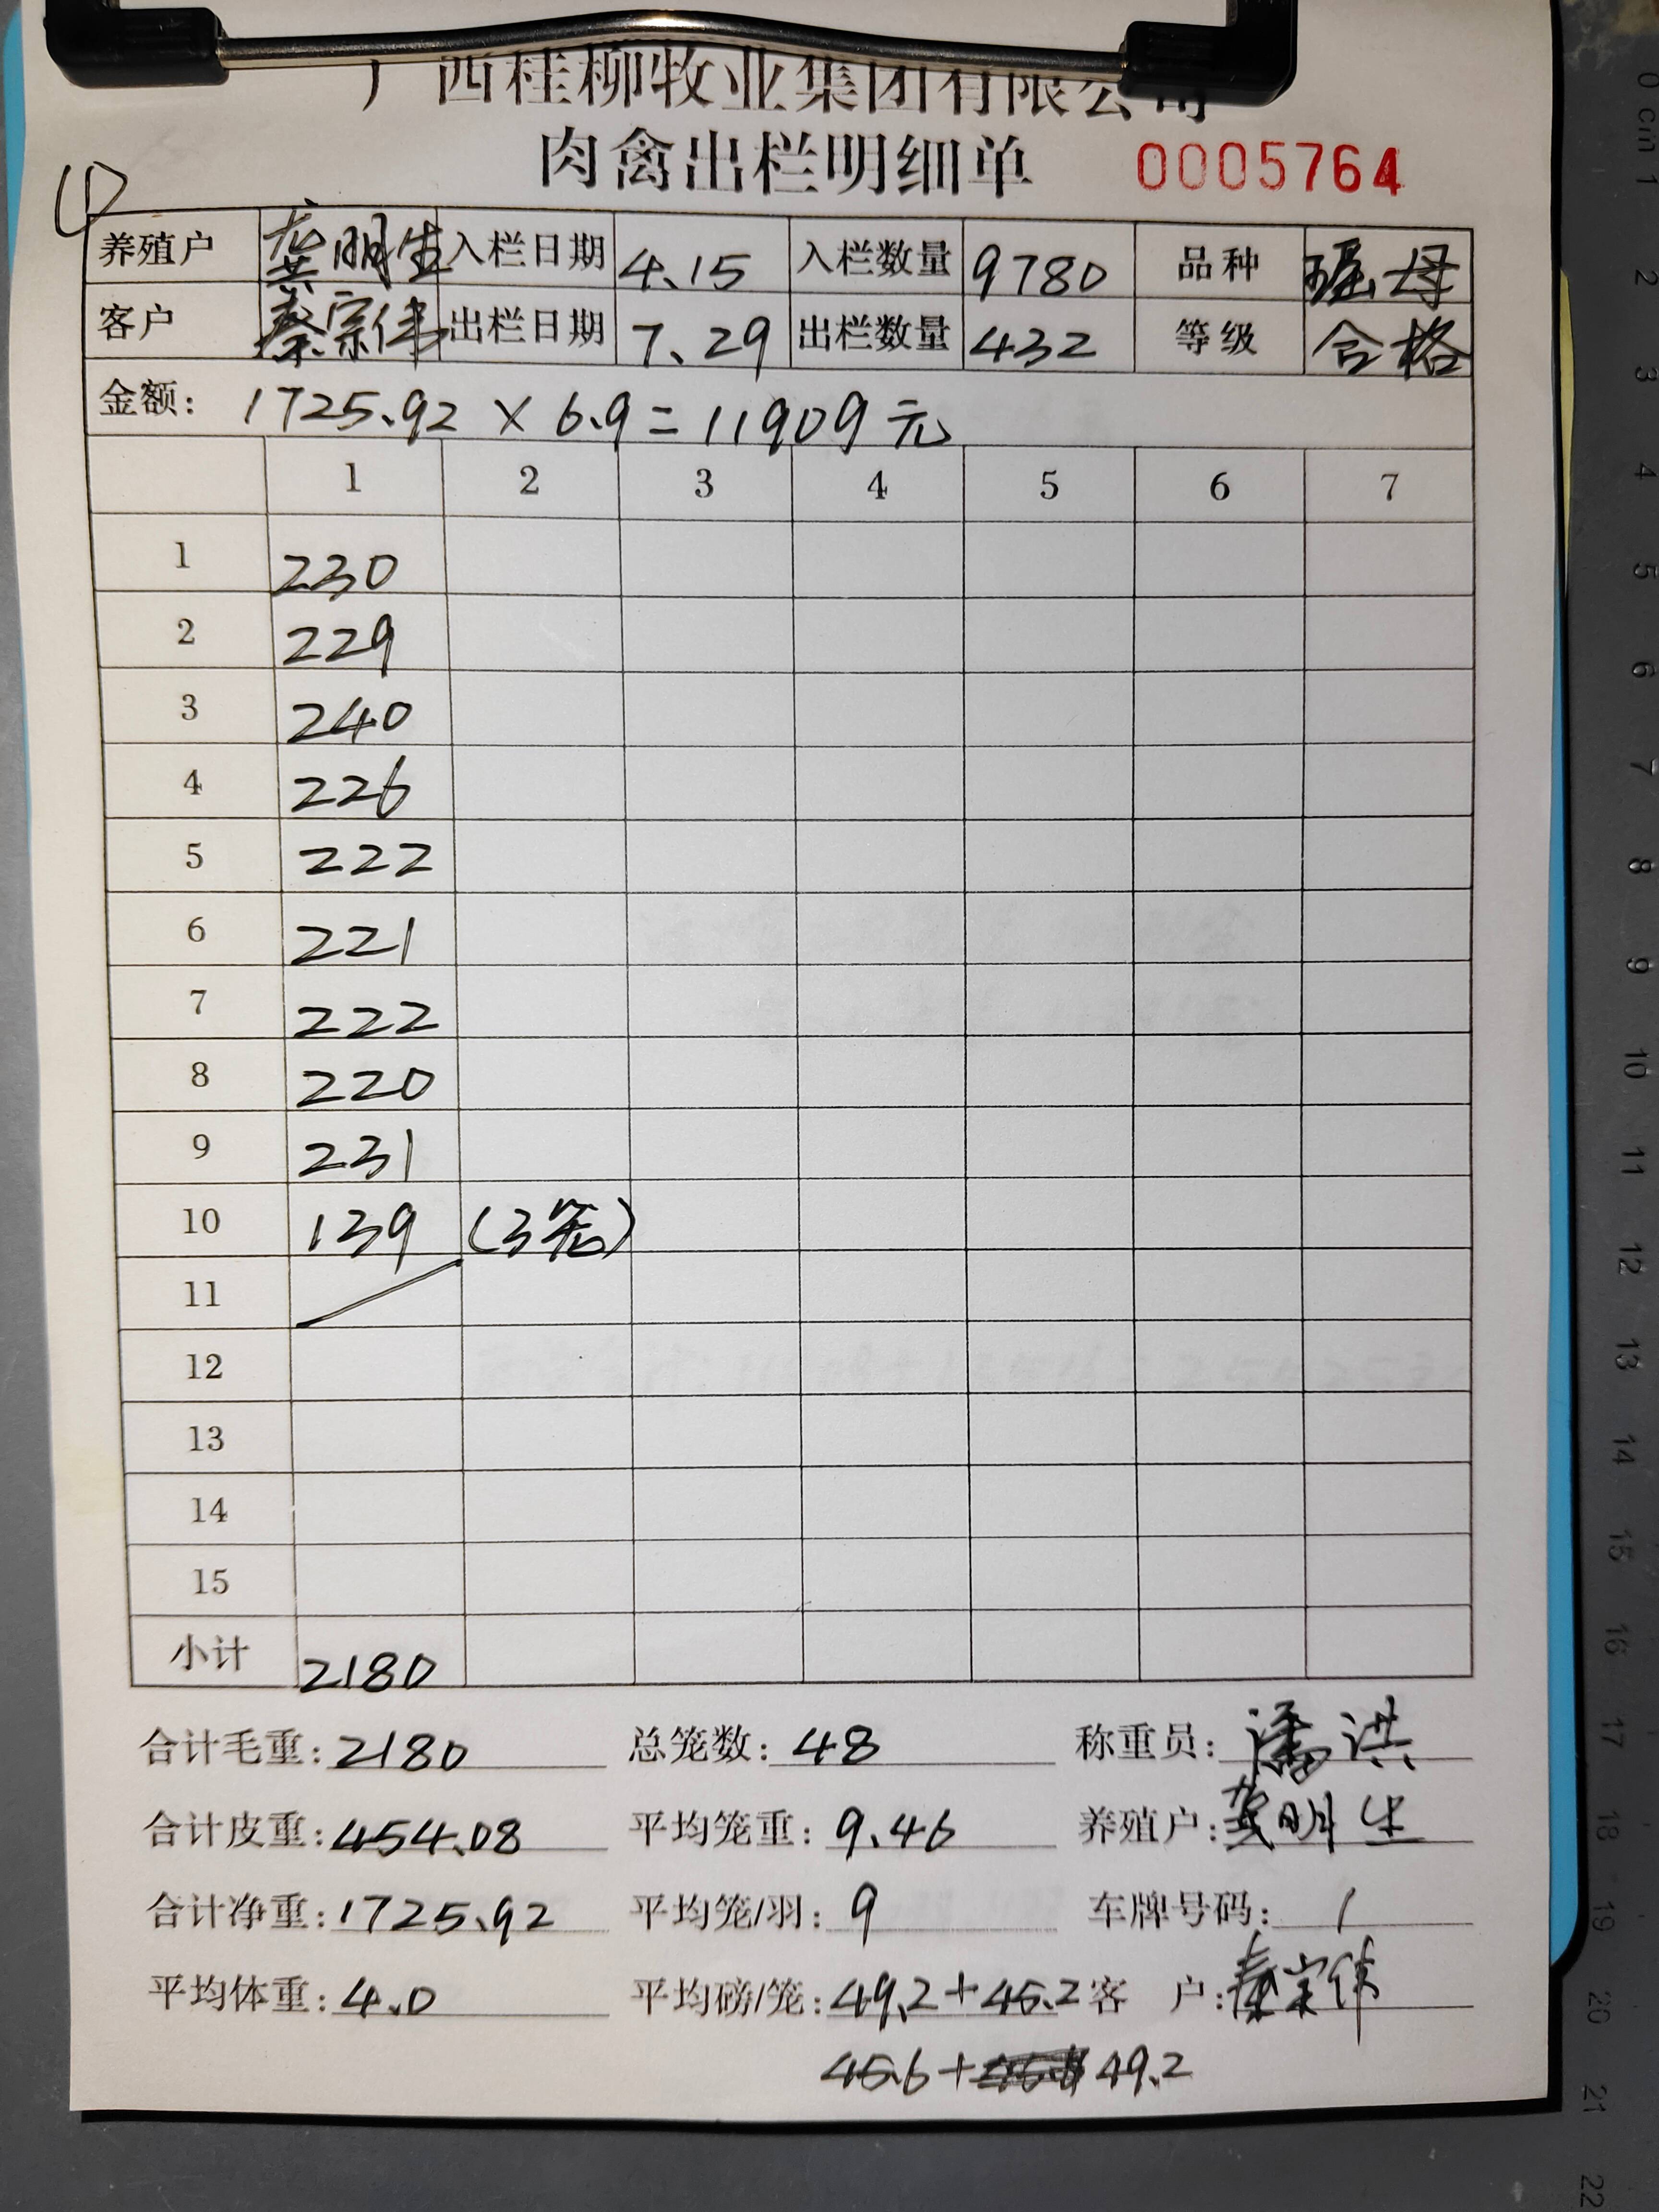 广西桂柳牧业集团有限公司
肉禽出栏明细单 0005764
养殖户 龚明生 入栏日期 4.15 入栏数量 9780 品种 瑶母
客户 秦宗伟 出栏日期 7.29 出栏数量 432 等级 合格
金额: 1725.92 × 6.9 = 11909元
1 2 3 4 5 6 7
1 230
2 229
3 240
4 226
5 222
6 221
7 222
8 220
9 231
10 139 (3笼)
11
12
13
14
15
小计 2180
合计毛重: 2180 总笼数: 48 称重员: 潘洪
合计皮重: 454.08 平均笼重: 9.46 养殖户: 龚明生
合计净重: 1725.92 平均笼/羽: 9 车牌号码: 1
平均体重: 4.0 平均磅/笼: 49.2+45.2 客 户: 秦宗伟
45.6+ 49.2
0 cm 1 2 3 4 5 6 7 8 9 10 11 12 13 14 15 16 17 18 19 20 21 22